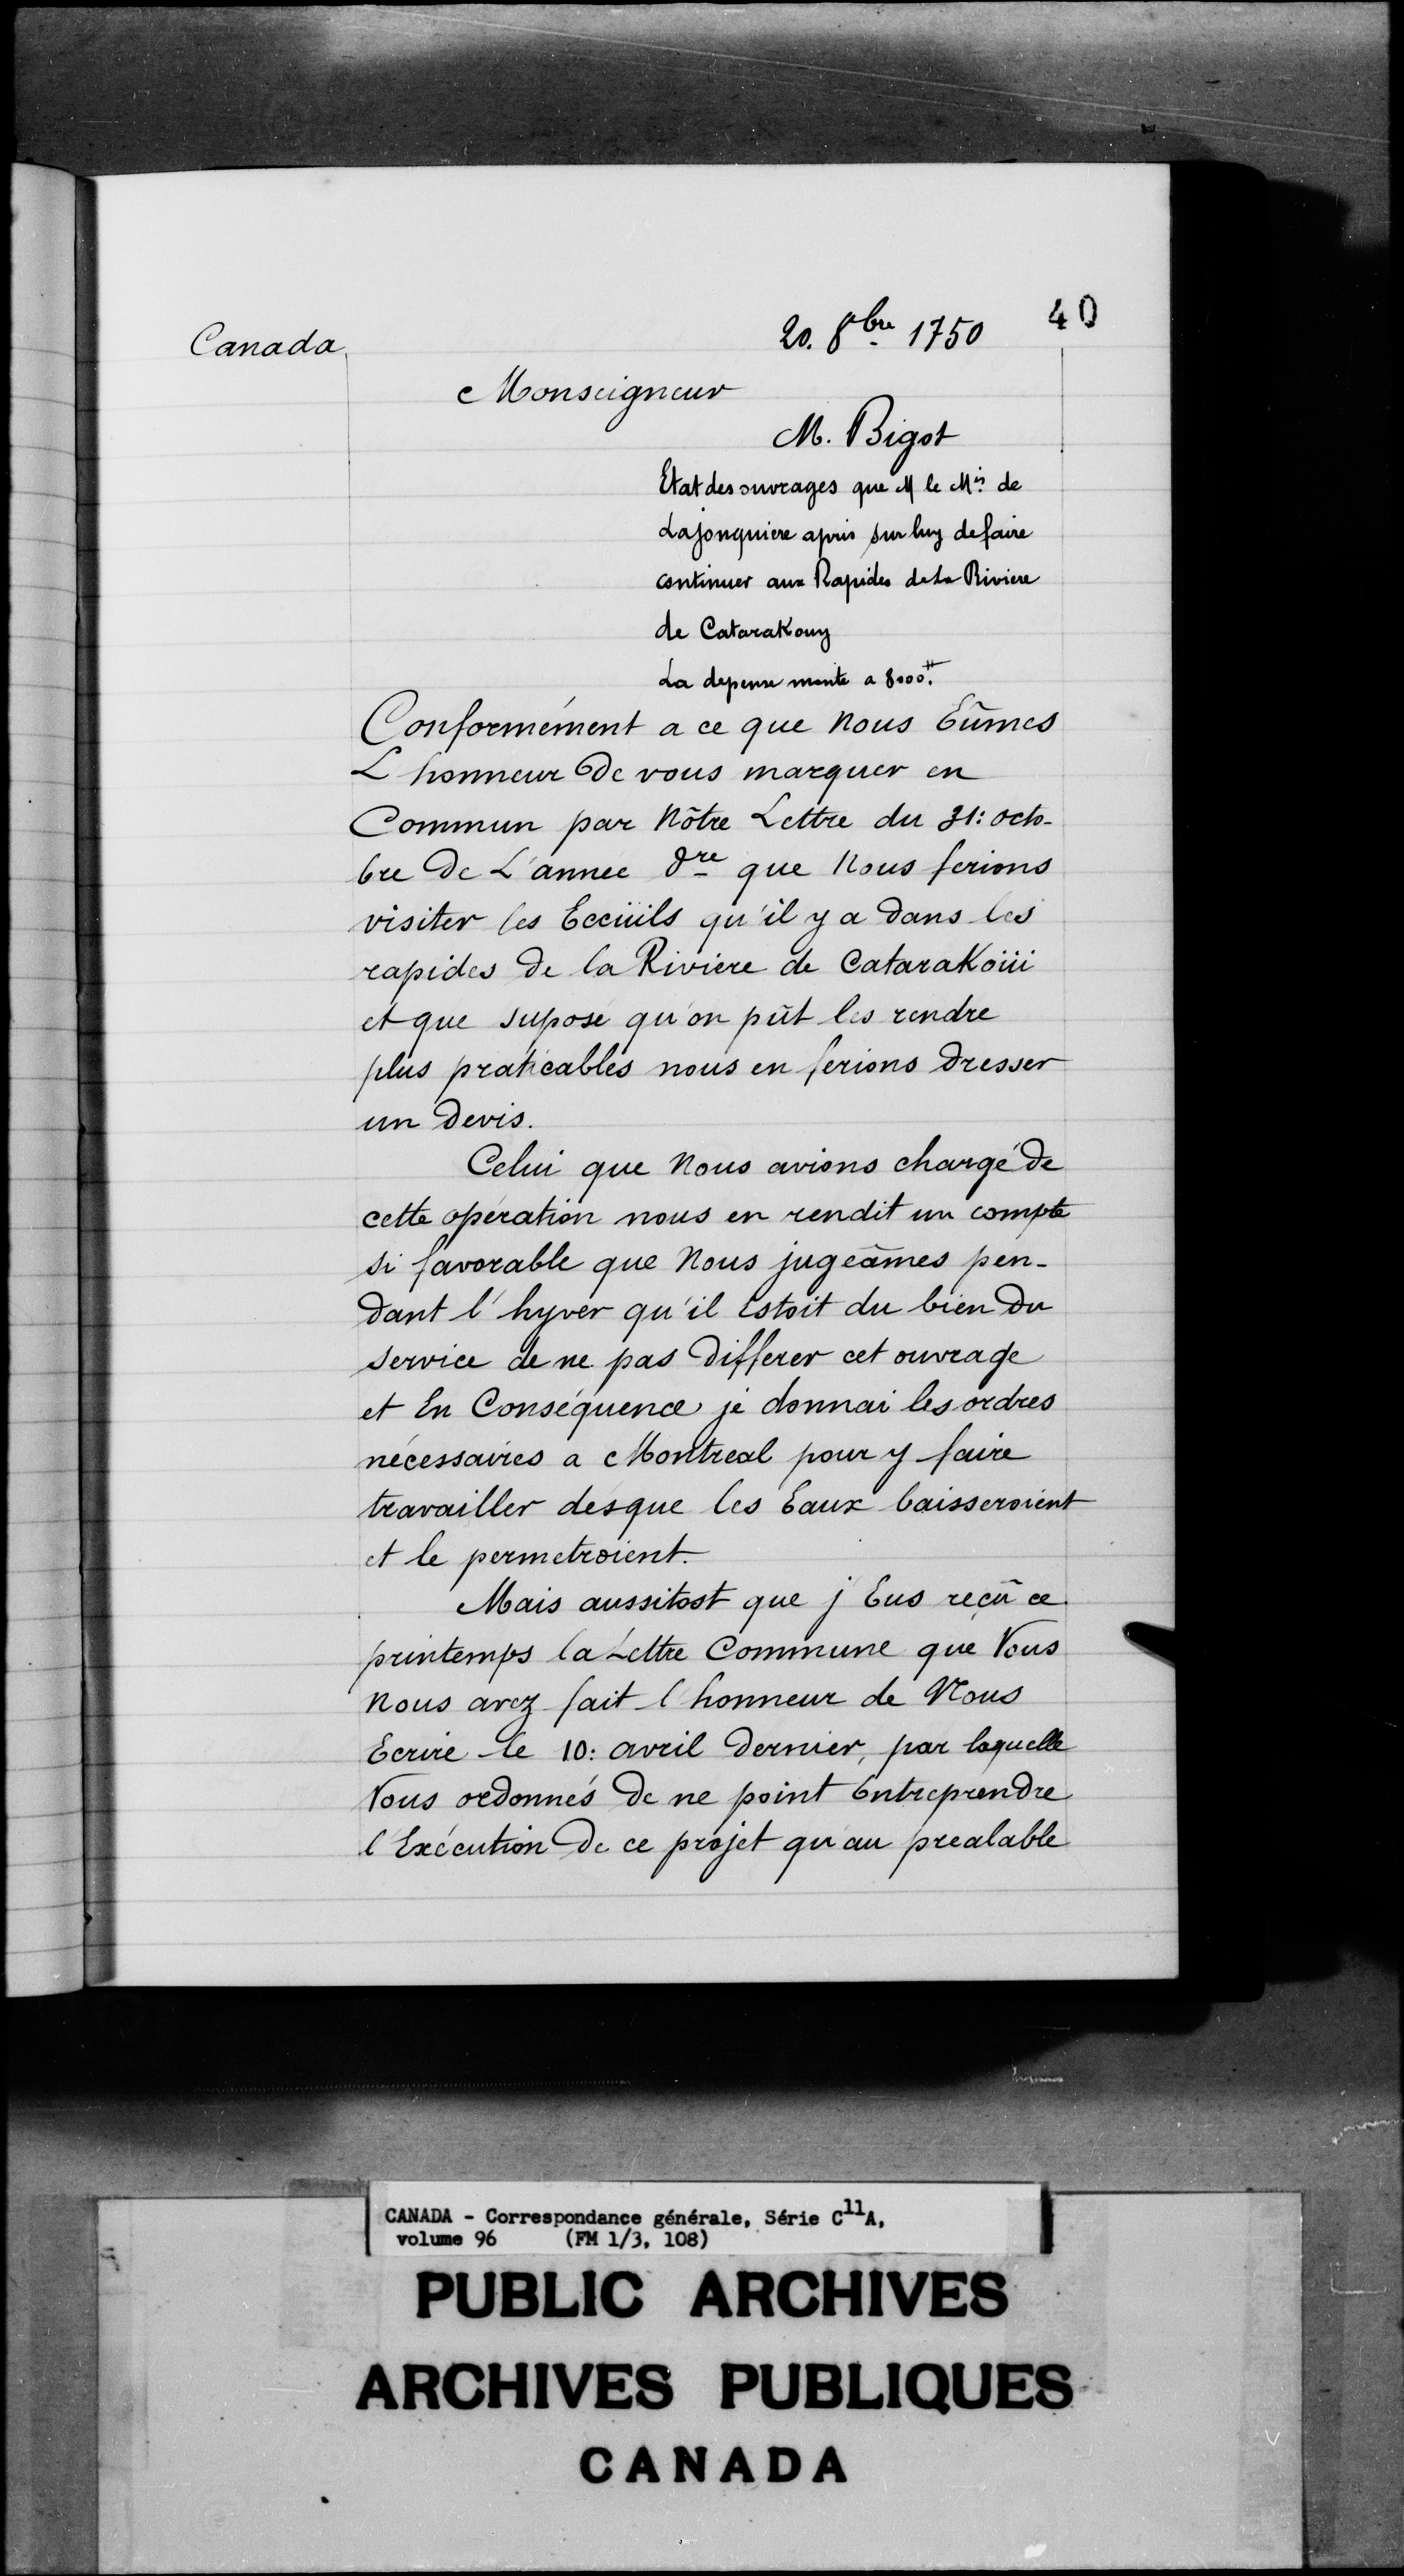 40
20. 8bre 1750
Canada
Monseigneur
M. Bigot
Etat des ouvrages que M le Mis de
Lajonquiere apris sur luy defaire
continuer aux Rapides dela Riviere
de Catarakouy
La depense monte a 8000.tt
Conformément a ce que Nous Eûmes
L honneur De vous marquer en
Commun par Nôtre Lettre du 31: octo-
bre De L'année dre que Nous ferions
visiter les Ecciiils qu'il y a dans les
rapides de la Riviere de Catarakoiii
et que suposé qu'on pût les rendre
plus praticables nous en ferions dresser
un Devis.
Celui que Nous avions chargé de
cette opération nous en rendit un compte
si favorable que Nous jugeâmes pen-
dant l'hyver qu'il Estoit du bien du
service de ne pas differer cet ouvrage
et En Conséquence je donnai les ordres
nécessaires a Montreal pour y faire
travailler desque les Eaux baisseroient
et le permetroient.
Mais aussitost que j Eus reçû ce
printemps la Lettre Commune que Vous
Nous avez fait l honneur de Nous
Ecrire le 10: avril dernier, par laquelle
Vous ordonnés De ne point Entreprendre
l Exécution De ce projet qu'au prealable
CANADA - Correspondance générale, Série C11A,
volume 96 (FM 1/3, 108)
PUBLIC ARCHIVES
ARCHIVES PUBLIQUES
CANADA